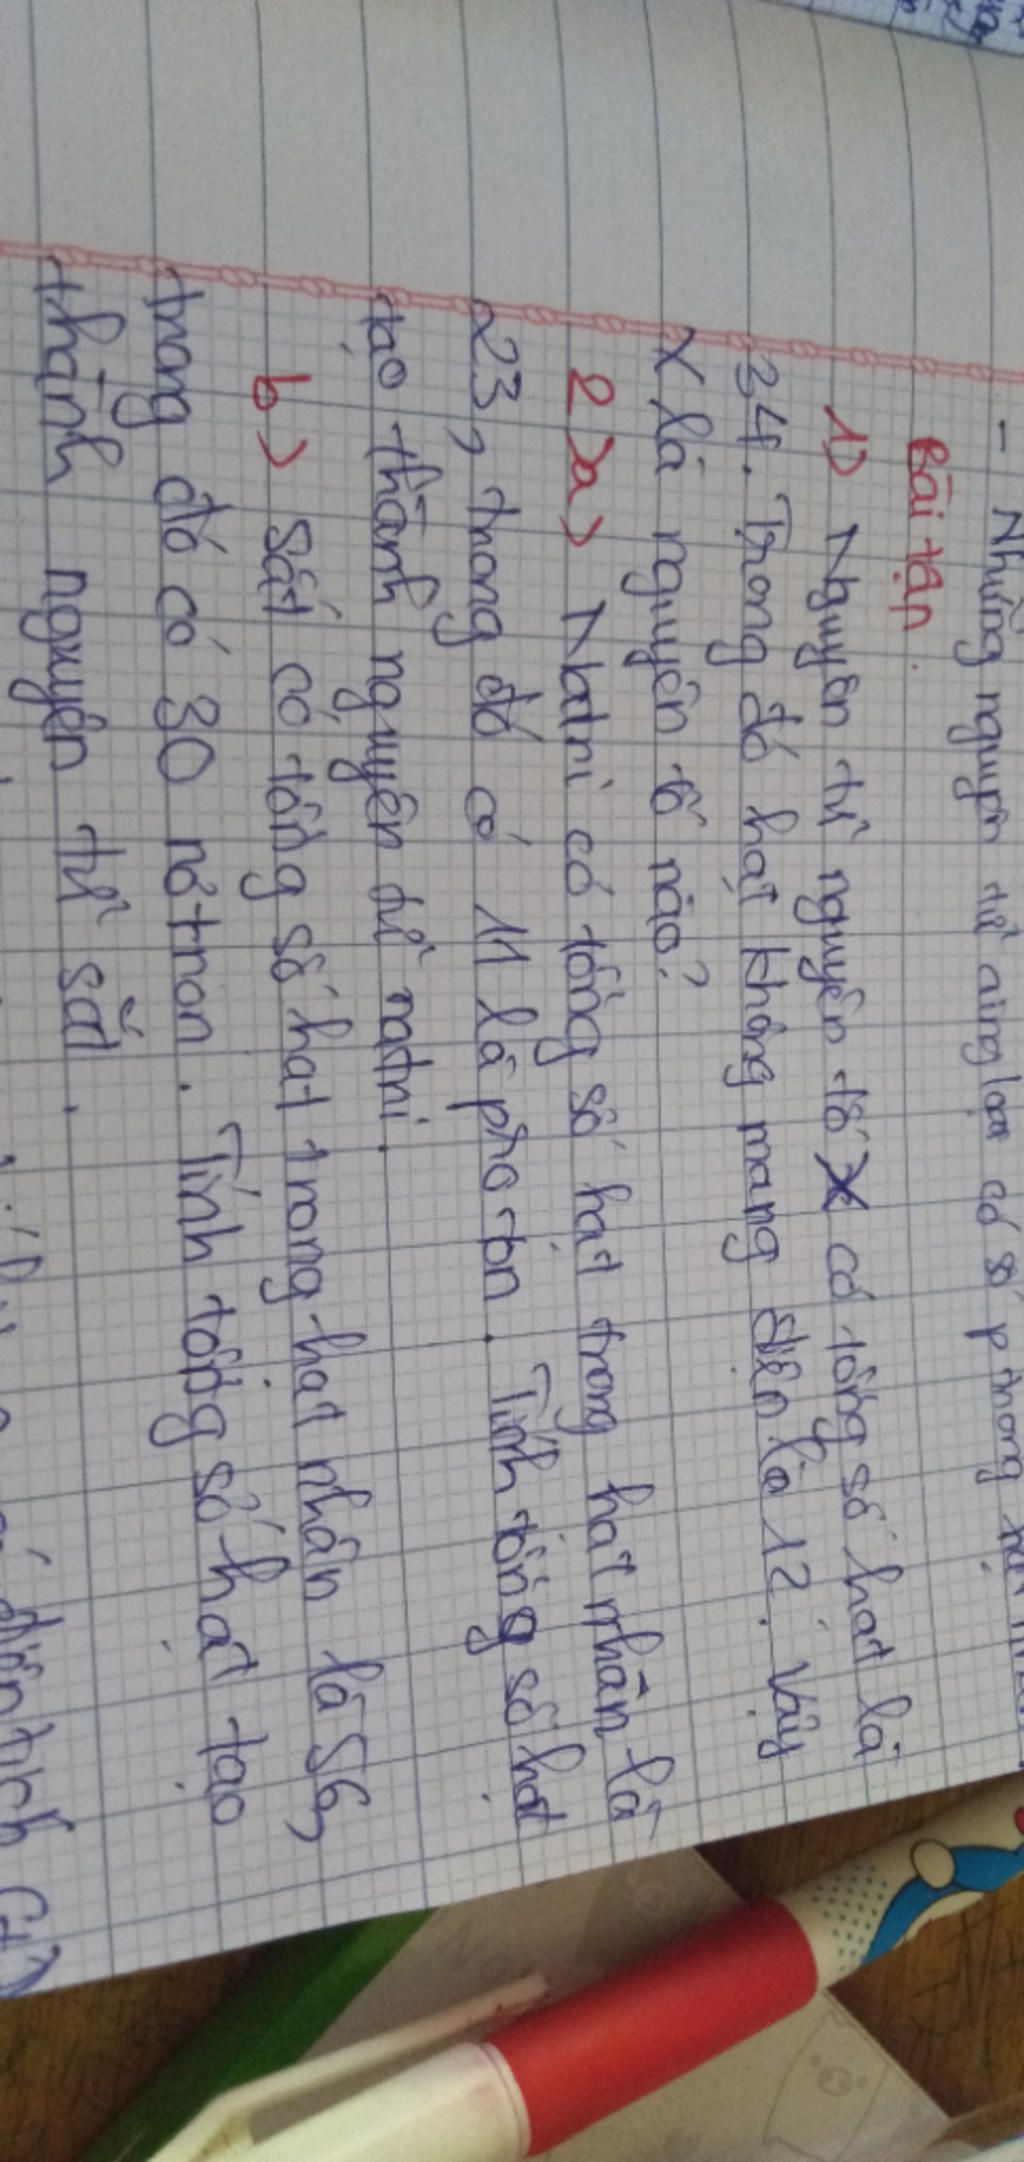 - Những nguyên tử cùng loại có số p trong hạt nhân.
Bài tập.
1) Nguyên tử nguyên tố X có tổng số hạt là
34. Trong đó hạt không mang điện là 12. Vậy
X là nguyên tố nào?
2) a) Natri có tổng số hạt trong hạt nhân là
23, trong đó có 11 là proton. Tính tổng số hạt
tạo thành nguyên tử natri.
b) Sắt có tổng số hạt trong hạt nhân là 56,
trong đó có 30 nơtron. Tính tổng số hạt tạo
thành nguyên tử sắt.